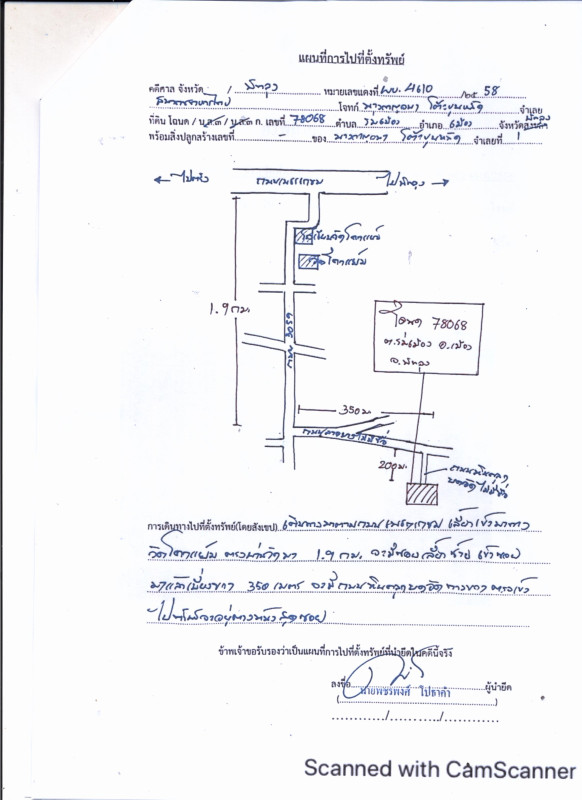 แผนที่การไปที่ตั้งทรัพย์
คดีศาล จังหวัด / พัทลุง หมายเลขแดงที่ ผบ. 4610 /๒๕ 58
โจทก์ จำเลย
ที่ดิน โฉนด / น.ส.๓ / น.ส.๓ ก. เลขที่ 78068 ตำบล ร่มเมือง อำเภอ เมือง จังหวัด พัทลุง
พร้อมสิ่งปลูกสร้างเลขที่ - ของ จำเลยที่ 1
← ไปตรัง ถนนเพชรเกษม ไปพัทลุง →
โรงเรียนวัดโคกแย้ม
วัดโคกแย้ม
1.9 กม.
ถนน
โฉนด 78068
ต.ร่มเมือง อ.เมือง
จ.พัทลุง
350 ม.
ถนนลาดยางไม่มีชื่อ
200 ม.
ถนนหินคลุก
บดอัด ไม่มีชื่อ
การเดินทางไปที่ตั้งทรัพย์(โดยสังเขป) เดินทางมาตามถนนเพชรเกษม เลี้ยวเข้ามาทาง
วัดโคกแย้ม ตรงผ่านวัดมา 1.9 กม. จะมีซอยเลี้ยวซ้าย เข้าซอย
มาแล้วเยื้องขวา 350 เมตร จะมีถนนหินคลุกบดอัด ทางขวา ตรงเข้า
ไปทรัพย์จะอยู่ทาง สุดซอย
ข้าพเจ้าขอรับรองว่าเป็นแผนที่การไปที่ตั้งทรัพย์ที่นำยึดในคดีนี้จริง
ลงชื่อ ผู้นำยึด
(นายพชรพงศ์ ไปธาคำ)
/ /
Scanned with CamScanner